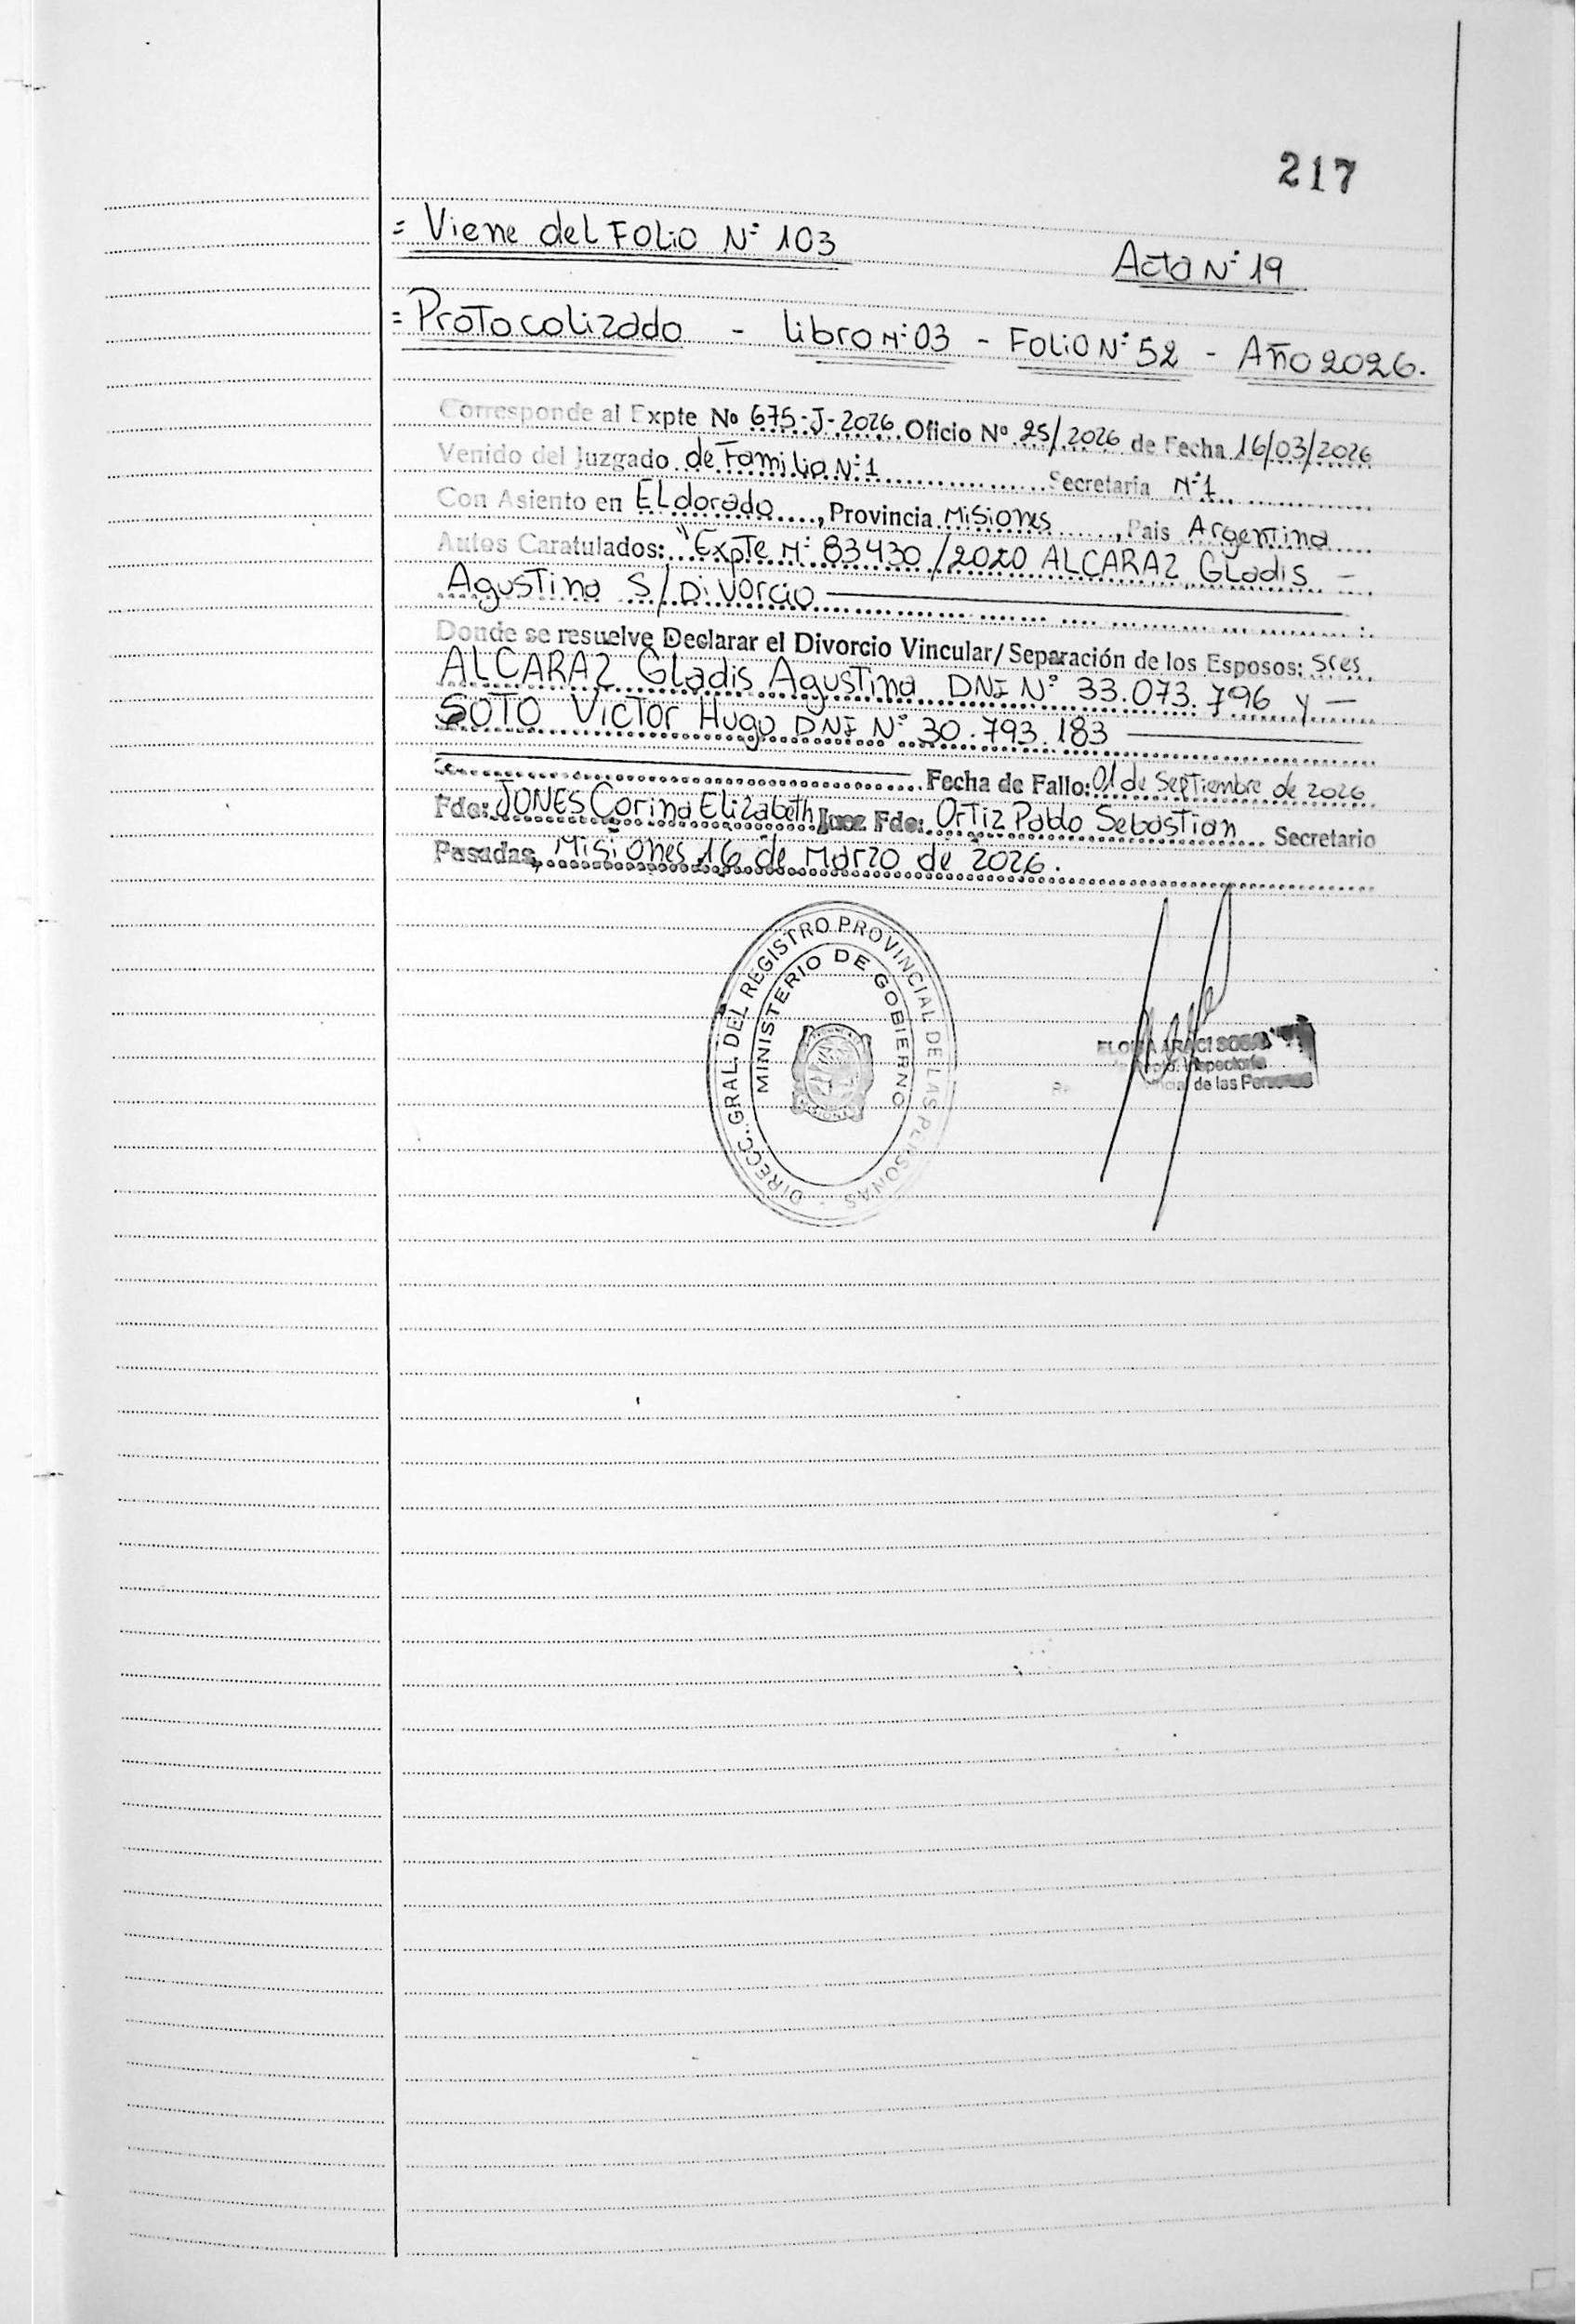 217
= Viene del Folio N° 103
Acta N° 19
= Protocolizado - Libro N° 03 - Folio N° 52 - Año 2026.
Corresponde al Expte No 675-J-2026 Oficio Nº 25/2026 de Fecha 16/03/2026
Venido del Juzgado de Familia N°1 Secretaría N°1
Con Asiento en Eldorado, Provincia Misiones, Pais Argentina
Autos Caratulados: "Expte N° 83430/2020 ALCARAZ Gladis -
Agustina S/Divorcio
Donde se resuelve Declarar el Divorcio Vincular/Separación de los Esposos: Sres
ALCARAZ Gladis Agustina DNI N° 33.073.796 y -
SOTO Victor Hugo DNI N° 30.793.183
Fecha de Fallo: 01 de Septiembre de 2026
Fdo: JONES Corina Elizabeth Juez Fdo: Ortiz Pablo Sebastian Secretario
Posadas, Misiones 16 de Marzo de 2026.
DIRECC. GRAL. DEL REGISTRO PROVINCIAL DE LAS PERSONAS
MINISTERIO DE GOBIERNO
ARACI SOSA
de las Personas